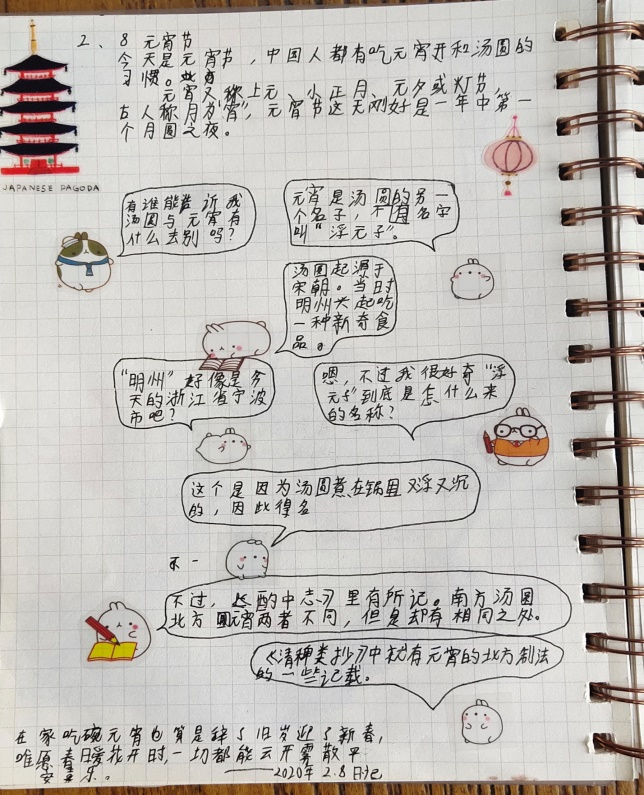 2、8 元宵节
今天是元宵节，中国人都有吃元宵并和汤圆的
习惯。
元宵又称上元、小正月、元夕或灯节，
古人称月为"宵"，元宵节这天刚好是一年中第一
个月圆之夜。
JAPANESE PAGODA
有谁能告诉我
汤圆与元宵有
什么去别吗？
元宵是汤圆的另一
个名子，不有名字
叫"浮元子"。
汤圆起源于
宋朝。当日时
明州兴起吃
一种新奇食
品。
"明州"好像是今
天的浙江省宁波
市吧？
嗯，不过我很好奇"浮
元子"到底是怎什么来
的名称？
这个是因为汤圆煮在锅里又浮又沉
的，因此得名
不一
不过，《酌中志》里有所记。南方汤圆
北方元宵两者不同，但是却有相同之处。
《清种类抄》中就有元宵的北方制法
的一些记载。
在家吃碗元宵也算是辞了旧岁迎了新春，
唯愿春暖花开时，一切都能云开雾散平
安喜乐。
——2020年2.8日记